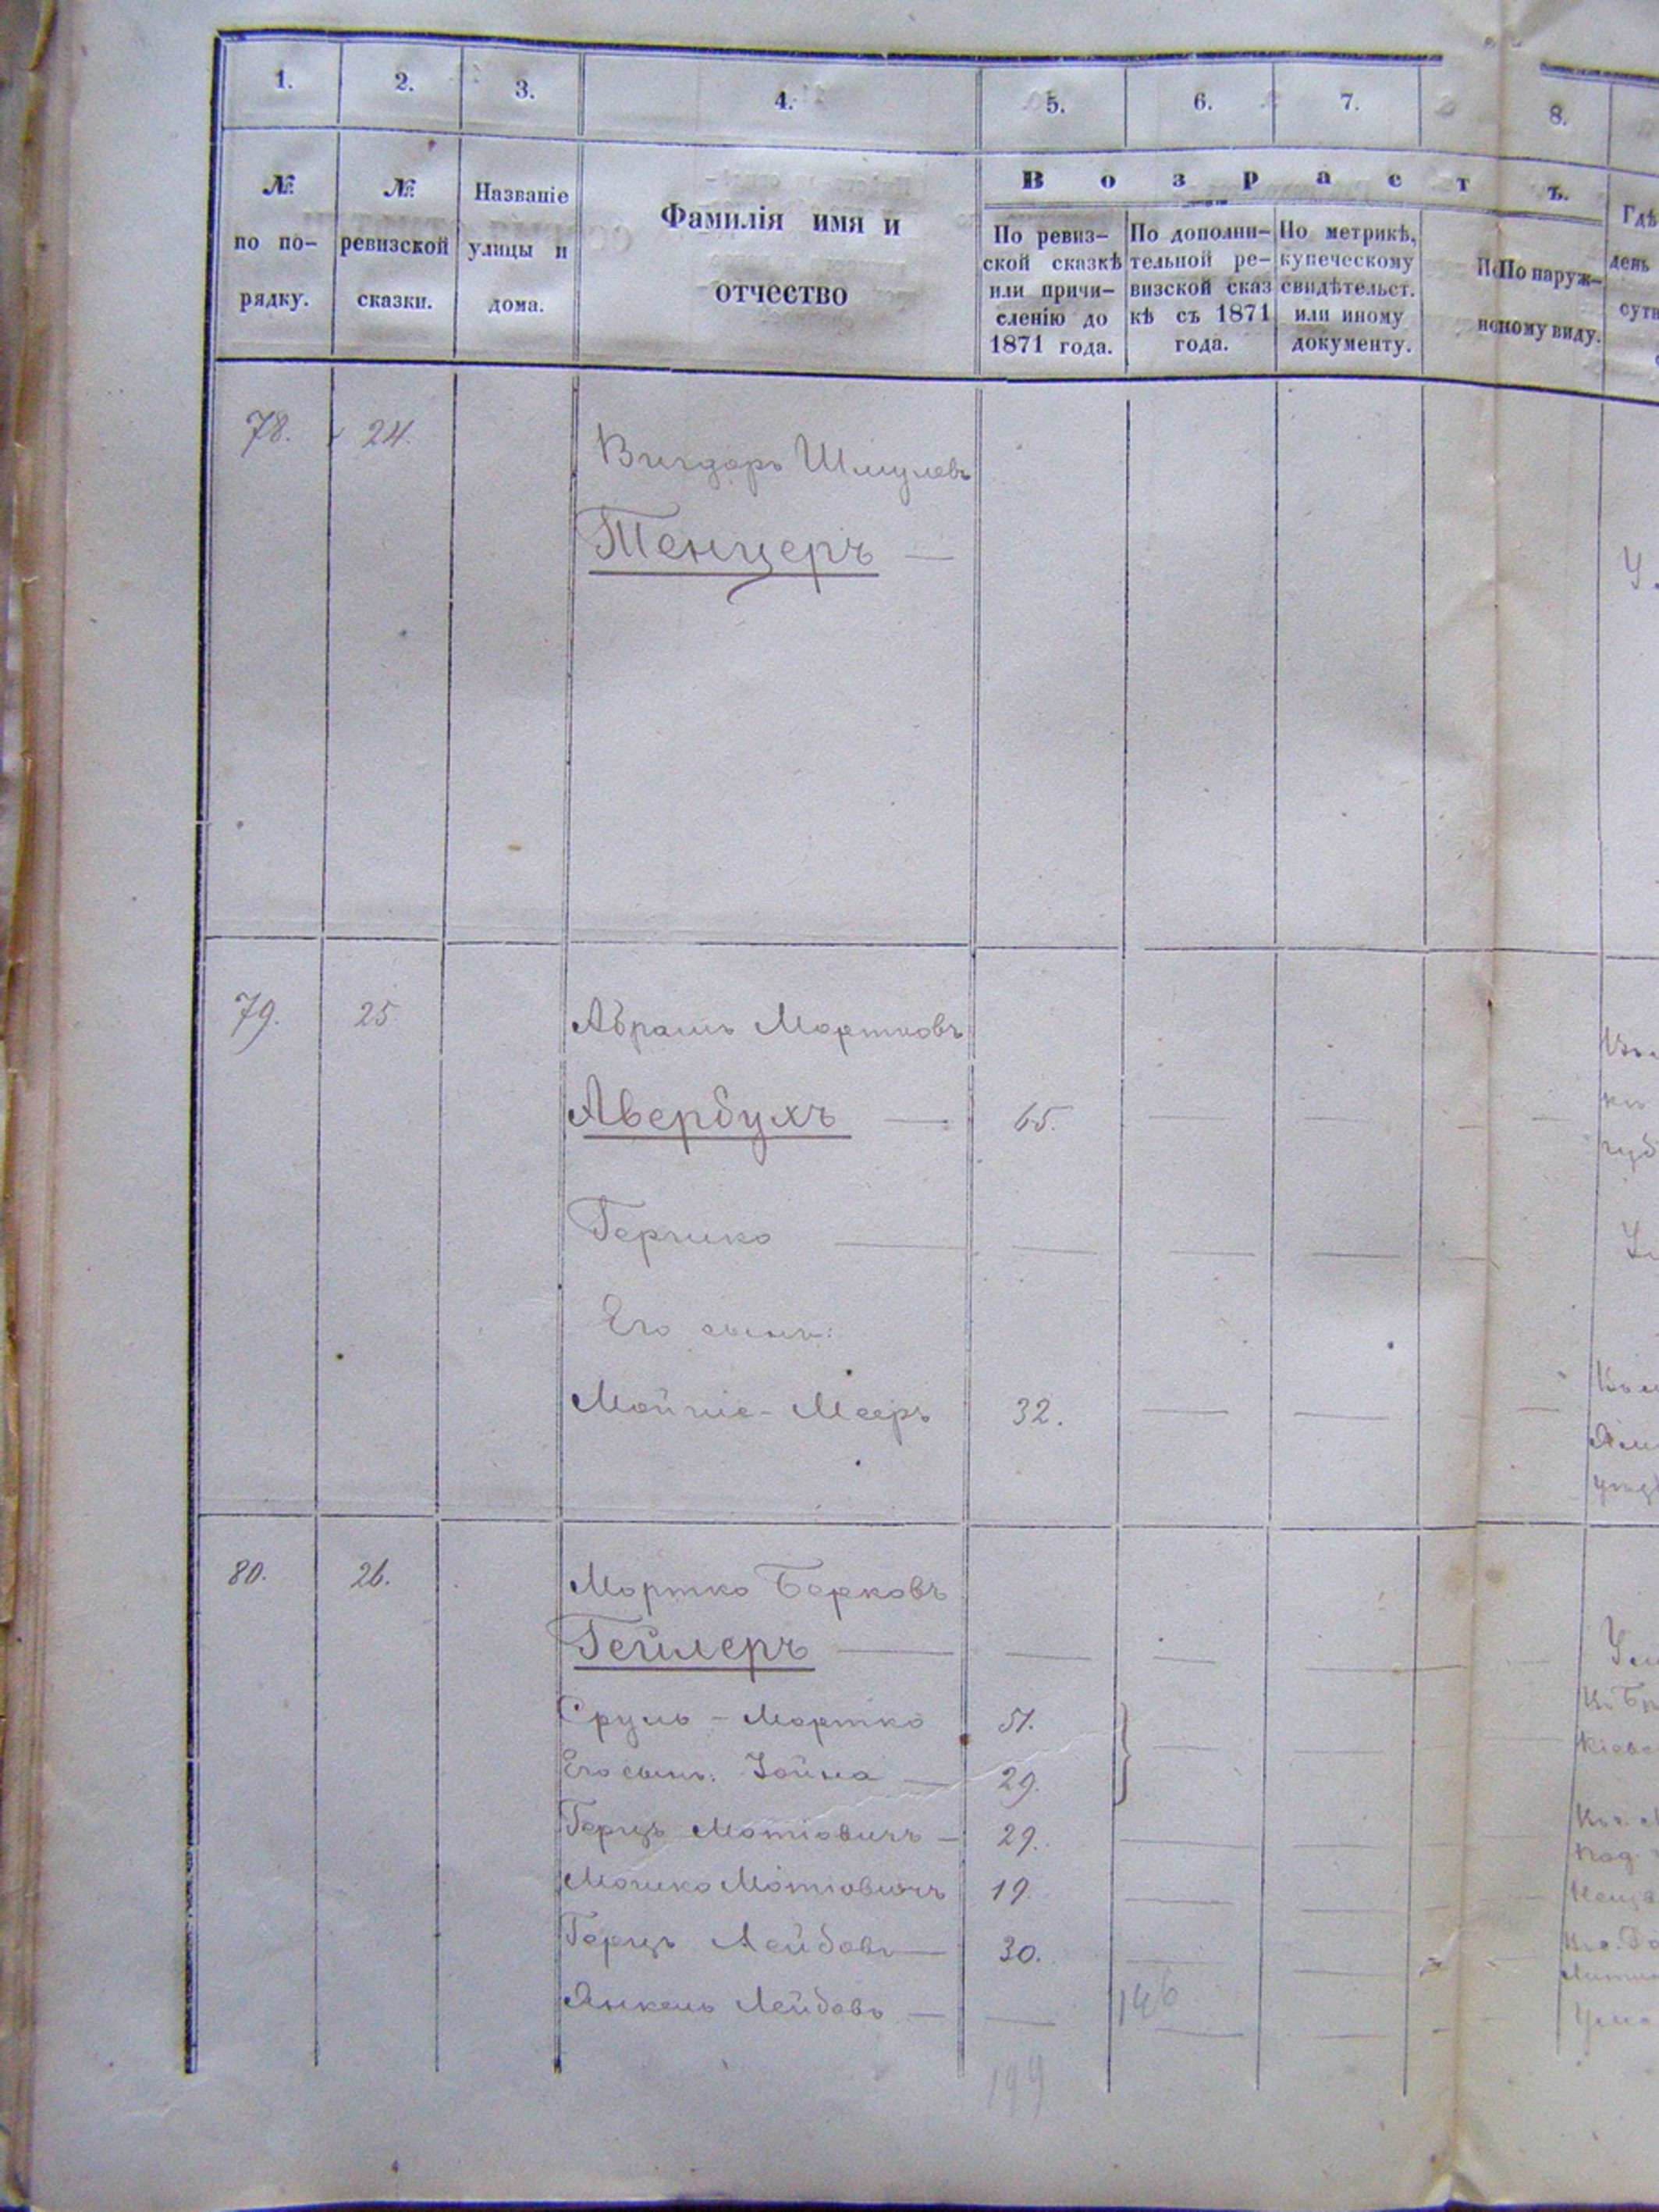 1. 2. 3. 4. 5. 6. 7. 8.
Возрастъ.
№ по по-рядку.
№ ревизской сказки.
Названіе улицы и дома.
Фамилія имя и отчество
По ревиз-ской сказкѣ или причи-сленію до 1871 года.
По дополни-тельной ре-визской сказ кѣ съ 1871 года.
По метрикѣ, купеческому свидѣтельст. или иному документу.
По наруж-ному виду.
Гдѣ
день
78. 24. Вигдоръ Шмулевъ
Тенцеръ —
79. 25 Абрамъ Мортковъ
Авербухъ — 65.
Гершко
Его сынъ:
Мойше-Мееръ 32.
80. 26. Мортко Берковъ
Гейлеръ
Сруль-Мортко 51.
Его сынъ: Іойна — 29.
Герцъ Мотіовичъ — 29.
Мошко Мотіовичъ 19.
Герцъ Лейбовъ — 30.
Янкель Лейбовъ —
146
199